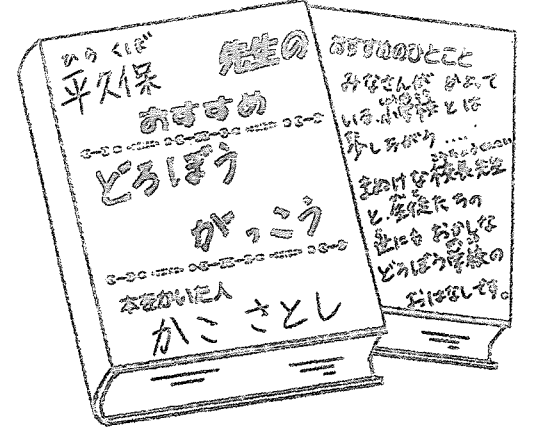 ひらくぼ
平久保
先生の
おすすめ
どろぼう
がっこう
本をかいた人
かこ さとし
おすすめのひとこと
みなさんが かよって
いる小学校とは
少しちがう....
まぬけな校長先生
と生徒たちの
世にも おかしな
どろぼう学校の
おはなしです。